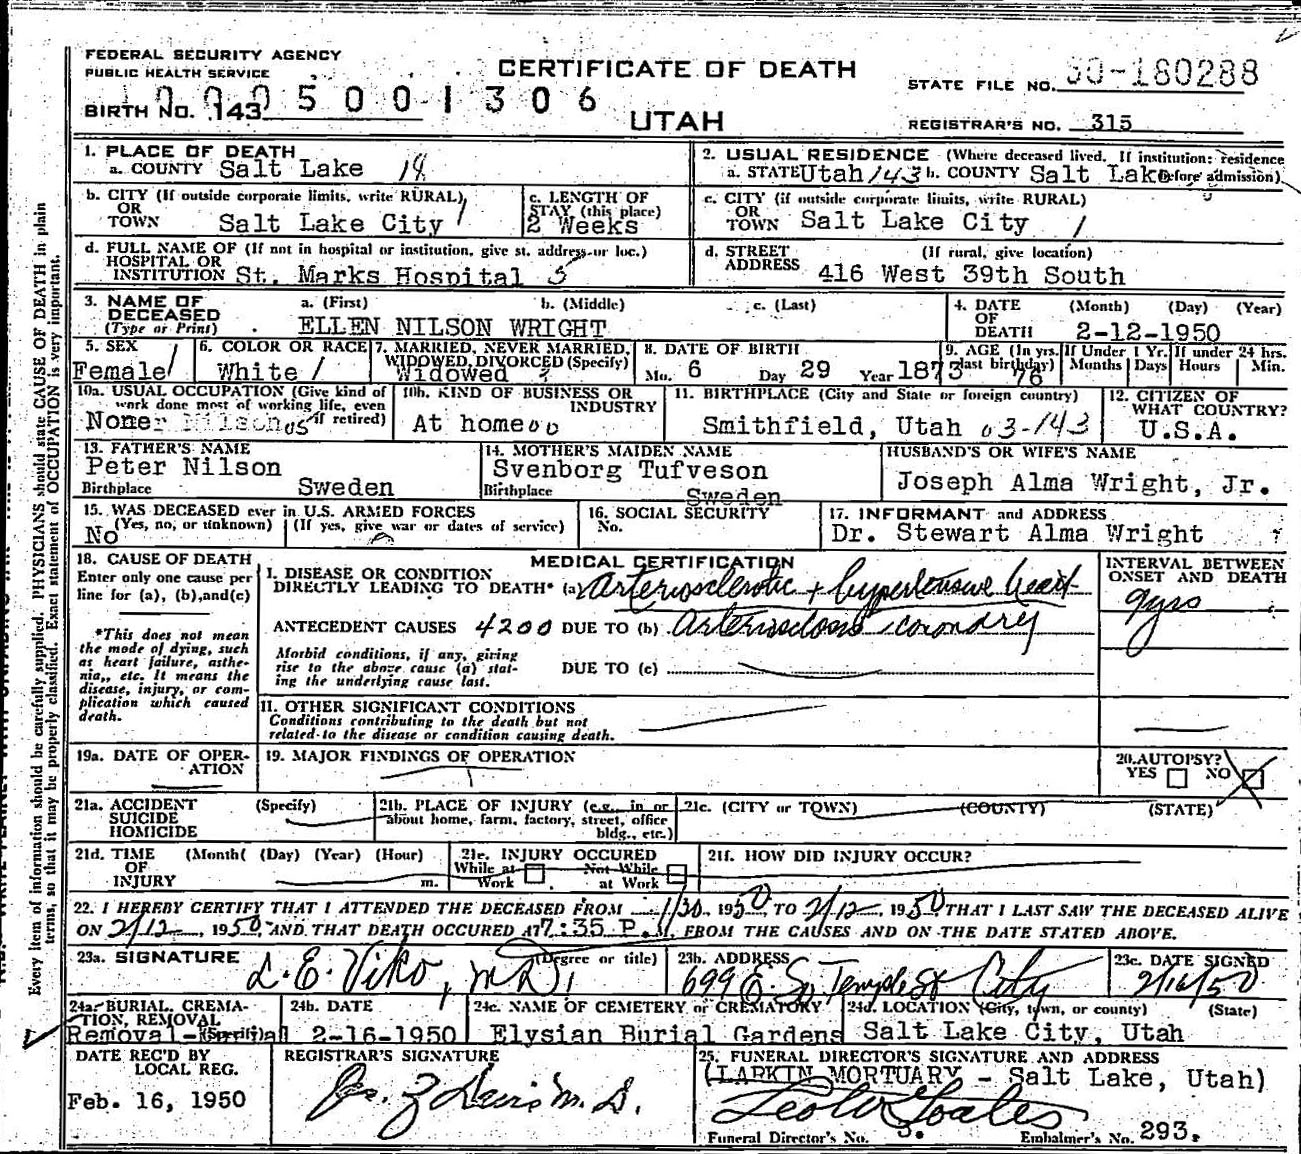 FEDERAL SECURITY AGENCY
PUBLIC HEALTH SERVICE
CERTIFICATE OF DEATH
STATE FILE NO. 50-180288
BIRTH NO. 143
0005001306
UTAH
REGISTRAR'S NO. 315
1. PLACE OF DEATH
a. COUNTY Salt Lake 18
2. USUAL RESIDENCE (Where deceased lived. If institution: residence before admission)
a. STATE Utah 143 b. COUNTY Salt Lake
b. CITY (If outside corporate limits, write RURAL)
OR
TOWN Salt Lake City 1
c. LENGTH OF
STAY (this place)
2 Weeks
c. CITY (if outside corporate limits, write RURAL)
OR
TOWN Salt Lake City 1
d. FULL NAME OF (If not in hospital or institution, give st. address or loc.)
HOSPITAL OR
INSTITUTION St. Marks Hospital 5
d. STREET (If rural, give location)
ADDRESS 416 West 39th South
3. NAME OF a. (First) b. (Middle) c. (Last)
DECEASED
(Type or Print) ELLEN NILSON WRIGHT
4. DATE (Month) (Day) (Year)
OF
DEATH 2-12-1950
5. SEX
Female 1
6. COLOR OR RACE
White 1
7. MARRIED, NEVER MARRIED,
WIDOWED, DIVORCED (Specify)
Widowed
8. DATE OF BIRTH
Mo. 6 Day 29 Year 1873
9. AGE (In yrs. last birthday) 76
If Under 1 Yr. Months Days
If under 24 hrs. Hours Min.
10a. USUAL OCCUPATION (Give kind of
work done most of working life, even
if retired)
None
10b. KIND OF BUSINESS OR
INDUSTRY
At home 00
11. BIRTHPLACE (City and State or foreign country)
Smithfield, Utah 03-143
12. CITIZEN OF
WHAT COUNTRY?
U.S.A.
13. FATHER'S NAME
Peter Nilson
Birthplace Sweden
14. MOTHER'S MAIDEN NAME
Svenborg Tufveson
Birthplace Sweden
HUSBAND'S OR WIFE'S NAME
Joseph Alma Wright, Jr.
15. WAS DECEASED ever in U.S. ARMED FORCES
(Yes, no, or unknown) (If yes, give war or dates of service)
No
16. SOCIAL SECURITY
No.
17. INFORMANT and ADDRESS
Dr. Stewart Alma Wright
18. CAUSE OF DEATH
Enter only one cause per
line for (a), (b), and (c)
*This does not mean
the mode of dying, such
as heart failure, asthe-
nia, etc. It means the
disease, injury, or com-
plication which caused
death.
MEDICAL CERTIFICATION
I. DISEASE OR CONDITION
DIRECTLY LEADING TO DEATH* (a) Arteriosclerotic + hypertensive heart
ANTECEDENT CAUSES 4200 DUE TO (b) Arteriosclerosis coronary
Morbid conditions, if any, giving
rise to the above cause (a) stat-
ing the underlying cause last.
DUE TO (c)
INTERVAL BETWEEN
ONSET AND DEATH
9yrs
II. OTHER SIGNIFICANT CONDITIONS
Conditions contributing to the death but not
related to the disease or condition causing death.
19a. DATE OF OPER-
ATION
19. MAJOR FINDINGS OF OPERATION
20. AUTOPSY?
YES NO
21a. ACCIDENT (Specify)
SUICIDE
HOMICIDE
21b. PLACE OF INJURY (e.g., in or
about home, farm, factory, street, office
bldg., etc.)
21c. (CITY or TOWN) (COUNTY) (STATE)
21d. TIME (Month( (Day) (Year) (Hour)
OF
INJURY m.
21e. INJURY OCCURED
While at Work Not While at Work
21f. HOW DID INJURY OCCUR?
22. I HEREBY CERTIFY THAT I ATTENDED THE DECEASED FROM 1/30, 1950, TO 2/12, 1950, THAT I LAST SAW THE DECEASED ALIVE
ON 2/12, 1950, AND THAT DEATH OCCURED AT 7:35 P.M. FROM THE CAUSES AND ON THE DATE STATED ABOVE.
23a. SIGNATURE (Degree or title)
L. E. Viko, M.D.
23b. ADDRESS
699 E. So. Temple St City
23c. DATE SIGNED
2/16/50
24a. BURIAL, CREMA-
TION, REMOVAL
(Specify)
24b. DATE
2-16-1950
24c. NAME OF CEMETERY or CREMATORY
Elysian Burial Gardens
24d. LOCATION (City, town, or county) (State)
Salt Lake City, Utah
DATE REC'D BY
LOCAL REG.
Feb. 16, 1950
REGISTRAR'S SIGNATURE
25. FUNERAL DIRECTOR'S SIGNATURE AND ADDRESS
(LARKIN MORTUARY - Salt Lake, Utah)
Funeral Director's No. Embalmer's No. 293.
Every item of information should be carefully supplied. PHYSICIANS should state CAUSE OF DEATH in plain
terms, so that it may be properly classified. Exact statement of OCCUPATION is very important.